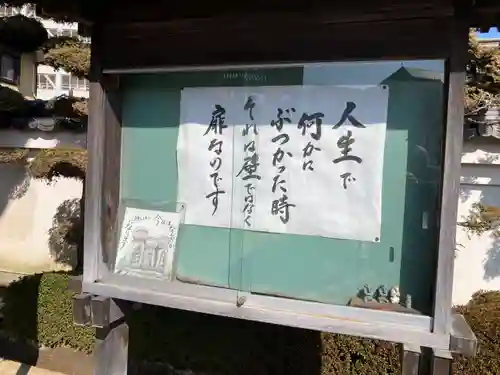 人生で
何かに
ぶつかった時
それは壁ではなく
扉なのです
今